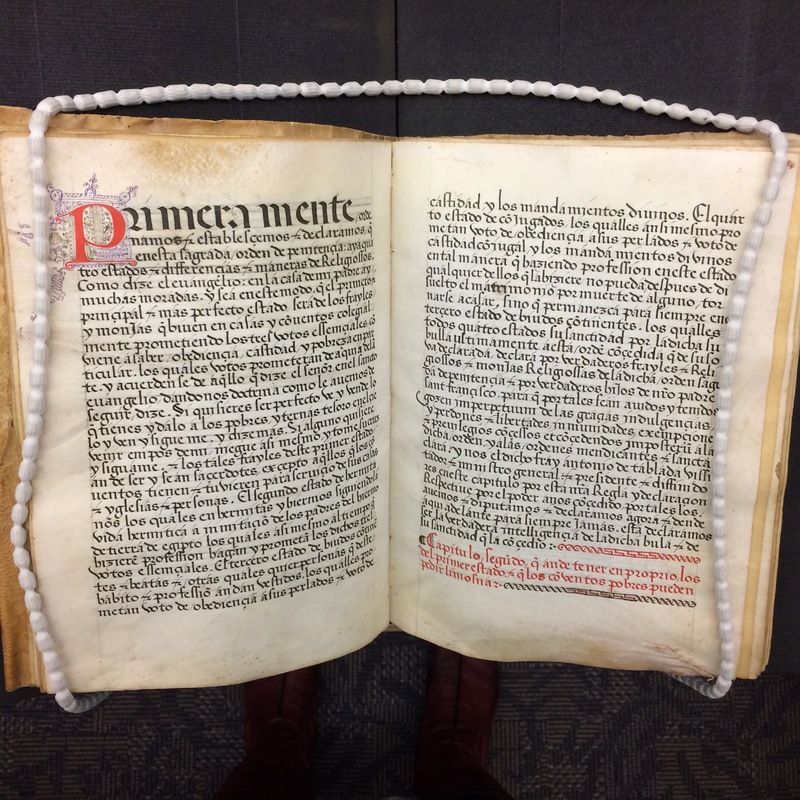 Primera mente, orde
namos & establesçemos & declaramos, q̃
enesta sagrada, orden de penitençia: aya qua
tro estados & differençias & maneras de Religiosos.
Como dize el euangelio: en la casa de mi padre ay
muchas moradas. Y sea en este modo, q̃ el primero
principal & mas perfecto estado, sera de los frayles
y monjas q̃ biuen en casas y cõuentos colegial
mente prometiendo los tres votos essençiales cõ
viene a saber, obediençia, castidad y pobreza en par
ticular. los quales votos prometeran de aqui adelã
te. y acuerden se de aq̃llo q̃ dize el señor en el sancto
euangelio, dando nos doctrina como le auemos de
seguir, dize. Si quisieres ser perfecto ve y vende lo
q̃ tienes y dalo a los pobres y ternas tesoro en el çie
lo y ven y sigue me. y dize mas. Si alguno quisiere
venir em pos de mi, niegue asi mesmo y tome su cruz
y siguame. & los tales frayles deste primer estado
an de ser y se an saçerdotes, excepto aq̃llos q̃ los cõ
uentos tienen & tuvieren para seruiçio de sus casas
& yglesias & personas. El segundo estado de hermita
nõs los quales en hermitas y hiermos siguiendo la
vida hermitica a imitaçiõ de los padres del hiermo
de tierra de egipto los quales asi mesmo al tiempo q̃
bizierẽ professiõn hagan y prometã los dichos tres
votos essençiales. El terçero estado de biudos cõtinẽ
tes & beatas &, otras quales quier personas q̃ deste
habito & professiõ an dan vestidos. los quales pro
metan voto de, obediençia a sus perlados & voto de
castidad, y los mandamientos diuinos. El quar
to estado de cõjugados. los qualles ansi mesmo pro
metan voto de obediençia a sus perlados & voto de
castidad cõjugal, y los mandamientos diuinos
en tal manera q̃ haziendo profession en este estado
qualquier dellos q̃ la hiziere no pueda despues de di
suelto el matrimonio por muerte de alguno, tor
narse a casar, sino q̃ permanezca para siempre en el
terçero estado de biudos cõtinentes. los qualles
todos quatro estados su sanctidad por la dicha su
bulla ultimamente a esta, ordẽ cõçedida q̃ de suso
va declarada, declara por verdaderos frayles & Reli
giossos & monjas Religiossas de la dicha, orden sagra
da de penitençia & por verdaderos hijos de nr̃o padre
sant françisco, para q̃ por tales sean auidos y tenidos
gozen imperpetuum de las graçias indulgençias,
y perdones & libertades inmunidades, exempçiones
& preuilegios cõçessos et cõçedendos imposterũ a la
dicha, orden, y a las, ordenes mendicantes & sancta
clara. Y nos el dicho fray antonio de tablada vissi
tador & ministro general & presidente & diffinido
res en este capitulo por esta nr̃a Regla y declaraçion
Respectiue por el poder a nos cõçedido por tales los,
auemos & diputamos & declaramos agora & dende
aqui adelante para siempre jamas. esta declaramos
ser la verdadera intelligençia de la dicha bulla & de
su sanctidad q̃ la cõçedio:~
Capitulo, segũdo, q̃ an de tener en proprio, los
del primer estado, & q̃ los cõventos pobres pueden
pedir limosna:~